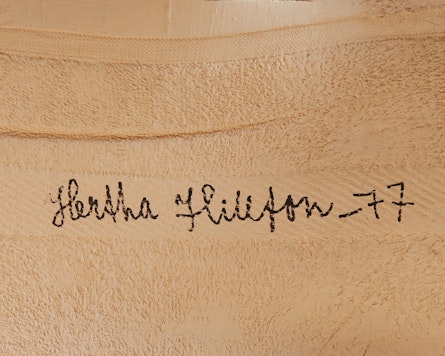 Hertha Hillfon -77